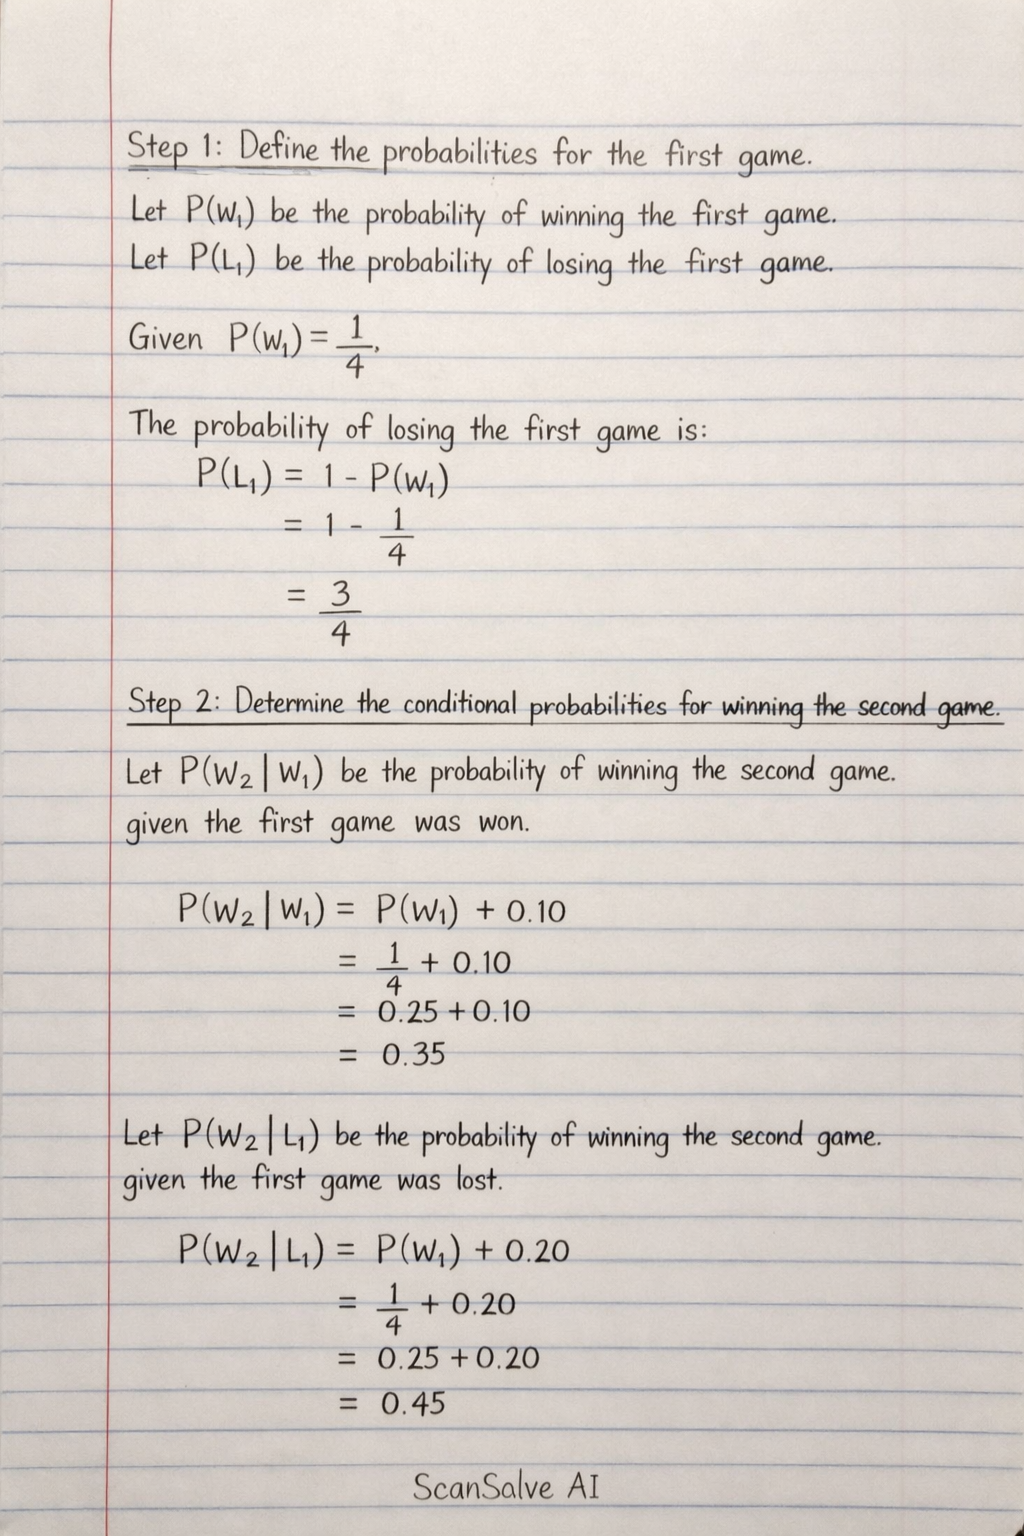 Step 1: Define the probabilities for the first game.
Let P(W₁) be the probability of winning the first game.
Let P(L₁) be the probability of losing the first game.
Given P(W₁) = 1/4,
The probability of losing the first game is:
P(L₁) = 1 - P(W₁)
= 1 - 1/4
= 3/4
Step 2: Determine the conditional probabilities for winning the second game.
Let P(W₂ | W₁) be the probability of winning the second game.
given the first game was won.
P(W₂ | W₁) = P(W₁) + 0.10
= 1/4 + 0.10
= 0.25 + 0.10
= 0.35
Let P(W₂ | L₁) be the probability of winning the second game.
given the first game was lost.
P(W₂ | L₁) = P(W₁) + 0.20
= 1/4 + 0.20
= 0.25 + 0.20
= 0.45
ScanSalve AI